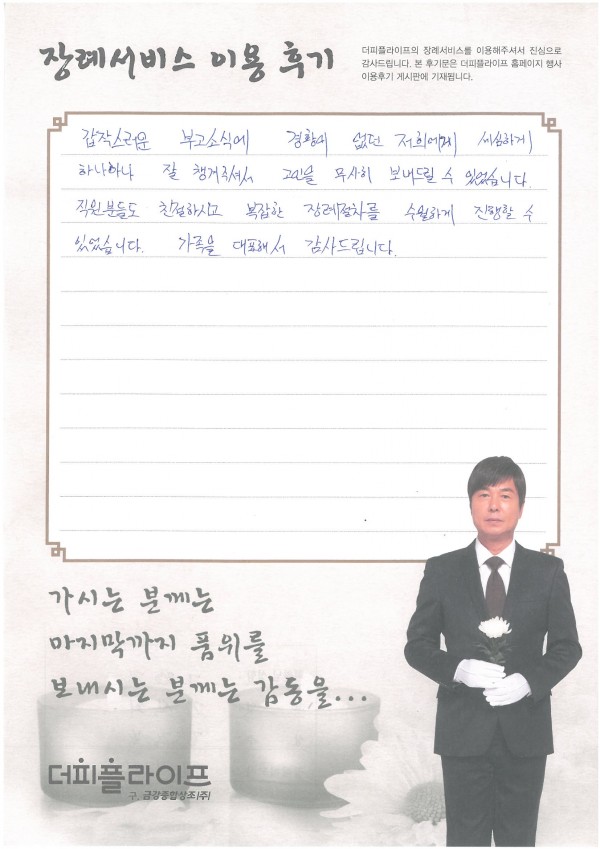 장례서비스 이용 후기
더피플라이프의 장례서비스를 이용해주셔서 진심으로
감사드립니다. 본 후기문은 더피플라이프 홈페이지 행사
이용후기 게시판에 기재됩니다.
갑작스러운 부고소식에 경황이 없던 저희에게 세심하게
하나하나 잘 챙겨주셔서 고인을 무사히 보내드릴 수 있었습니다.
직원분들도 친절하시고 복잡한 장례절차를 수월하게 진행할 수
있었습니다. 가족을 대표해서 감사드립니다.
가시는 분께는
마지막까지 품위를
보내시는 분께는 감동을...
더피플라이프
구. 금강종합상조(주)